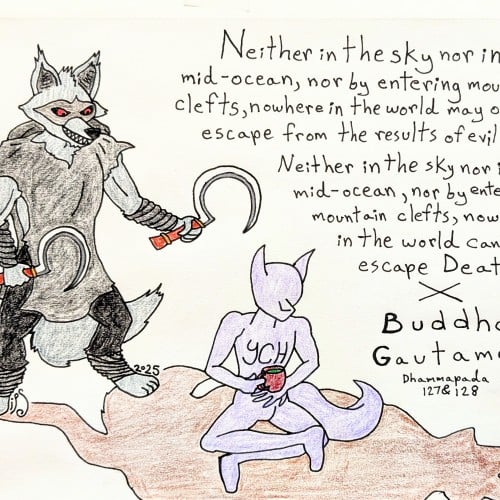 Neither in the sky nor in
mid-ocean, nor by entering mou
clefts, nowhere in the world may o
escape from the results of evil
Neither in the sky nor i
mid-ocean, nor by ente
mountain clefts, now
in the world can
escape Deat
Buddha
Gautama
Dhammapada
127&128
YCH
2025